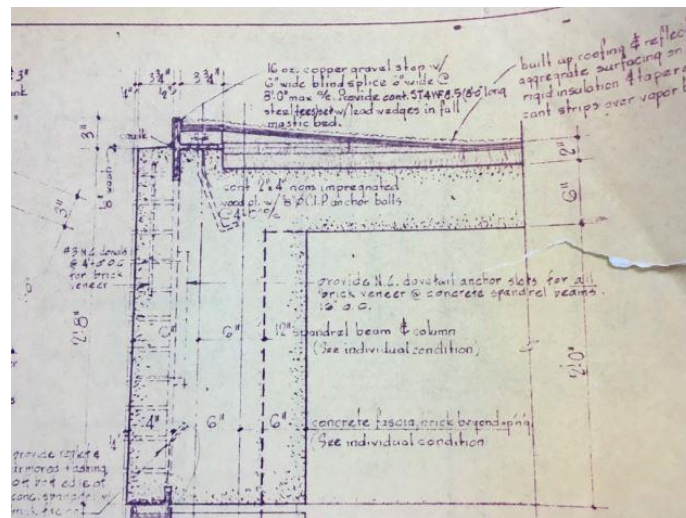 3"
3¾"
3¾"
16 oz. copper gravel stop w/
6" wide blind splice 6" wide @
8'0" max %c. Provide cont. ST4WF8.5 (8'0" long
steel tees) set w/ lead wedges in full
mastic bed.
built up roofing & reflec
aggregate surfacing on
rigid insulation & taper
cant strips over vapor b
½"
3"
caulk
2"
wash
cont 2"x4" nom impregnated
wood w/
anchor bolts
@ 4'-0" %c
6"
3"
@ 4'-0" O.C
for brick
veneer
provide N.C. dovetail anchor slots for all
brick veneer @ concrete spandrel beams.
16" O.C.
2'8"
6"
6"
12" spandrel beam & column
(See individual condition)
2'0"
4"
6"
6"
concrete fascia, brick beyond
(See individual condition
provide
armored flashing
edge of
conc. spandrel